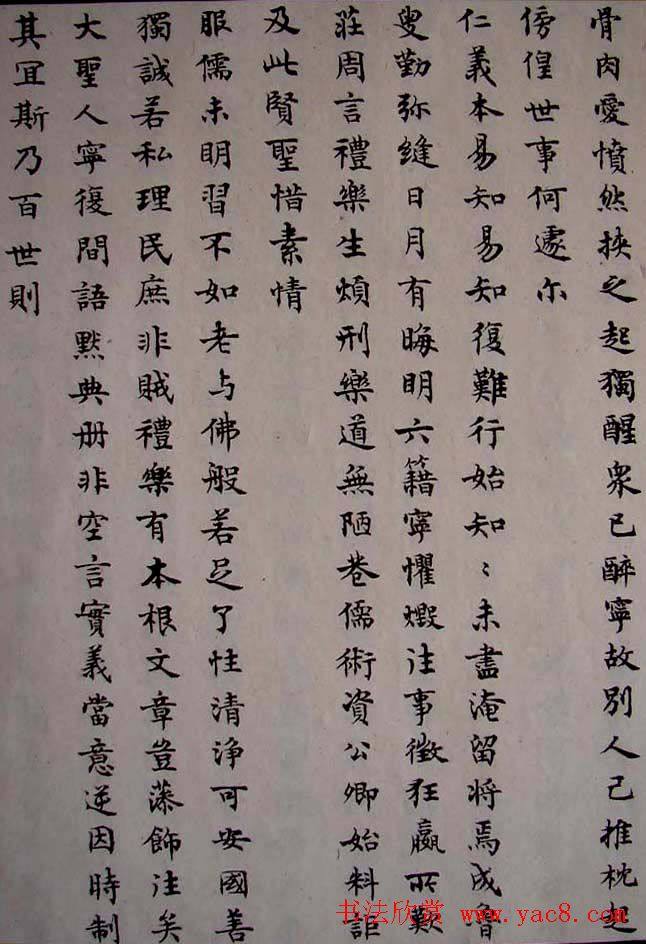 骨肉愛憤然挾之起獨醒衆已醉寧故別人己推枕起
傍偟世事何遽尓
仁義本易知易知復難行始知〻未盡淹留將焉成魯
叟勤弥縫日月有晦明六籍寧懼燬注事徵狂嬴所歎
莊周言禮樂生煩刑樂道無陋巷儒術資公卿始料詎
及此賢聖惜素情
服儒未明習不如老与佛般若足了性清淨可安國善
獨誠若私理民庶非賊禮樂有本根文章豈藻飾注矣
大聖人寧復間語默典册非空言實義當意逆因時制
其宜斯乃百世則
书法欣赏 www.yac8.com